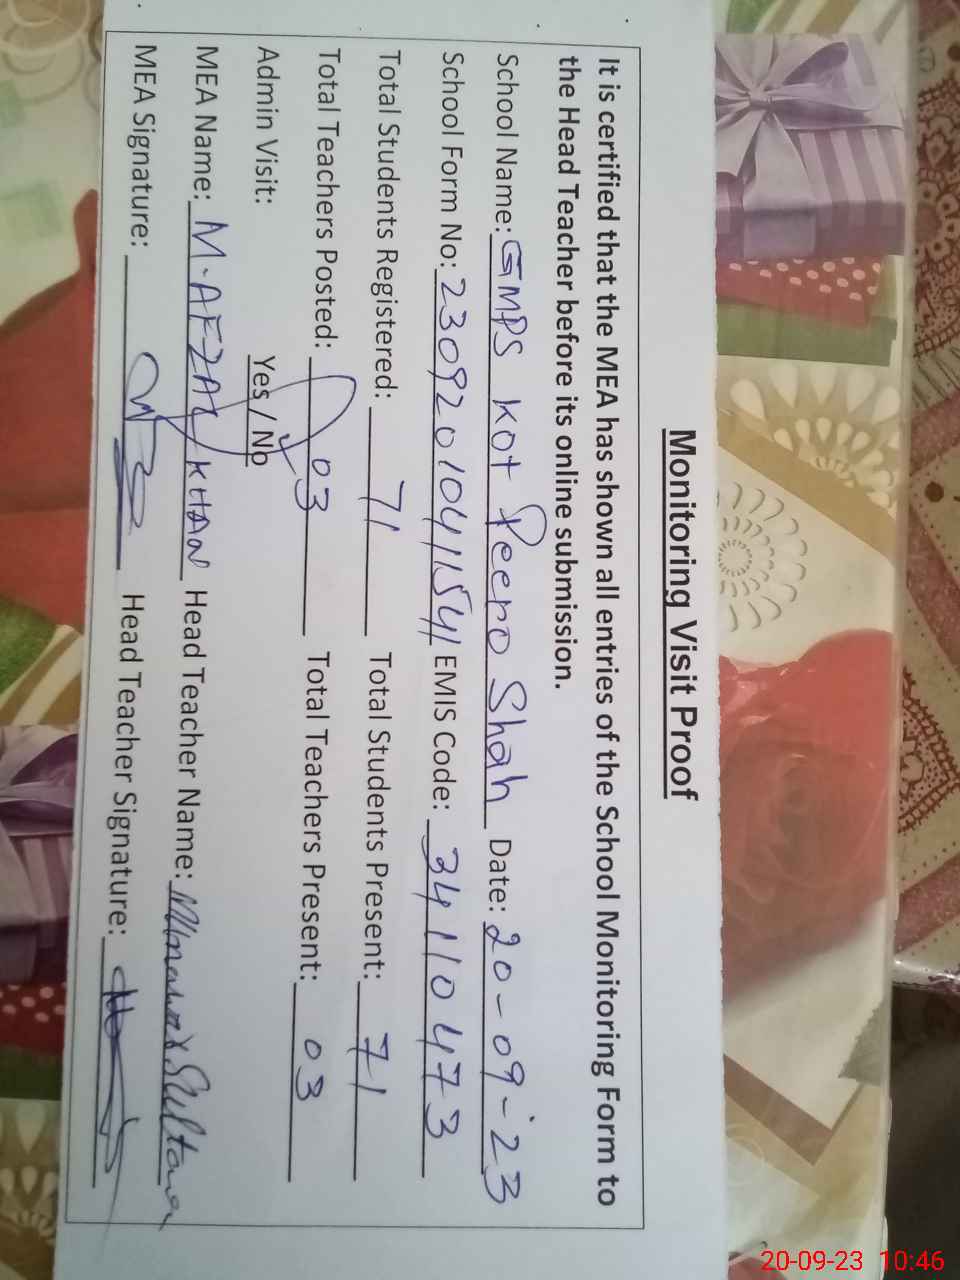 Monitoring Visit Proof
It is certified that the MEA has shown all entries of the School Monitoring Form to
the Head Teacher before its online submission.
School Name: GMPS Kot Peero Shah Date: 20-09-23
School Form No: 2309201041154 EMIS Code: 34110473
Total Students Registered: 71 Total Students Present: 71
Total Teachers Posted: 03 Total Teachers Present: 03
Admin Visit: Yes / No
MEA Name: M. AFZAL KHAN Head Teacher Name: Sultana
MEA Signature: Head Teacher Signature:
20-09-23 10:46